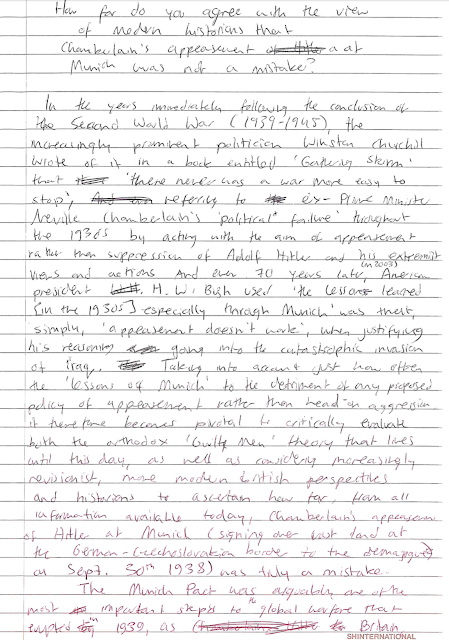 How far do you agree with the view
of modern historians that
Chamberlain's appeasement at
Munich was not a mistake?
In the years immediately following the conclusion of
the Second World War (1939-1945), the
increasingly prominent politician Winston Churchill
wrote of it in a book entitled 'Gathering Storm'
that 'there never was a war more easy to
stop', referring to ex-Prime Minister
Neville Chamberlain's 'political failure' throughout
the 1930s by acting with the aim of appeasement
rather than suppression of Adolf Hitler and his extremist
views and actions. And even 70 years later, (in 2003) American
president H. W. Bush used 'the lessons learned
[in the 1930s] especially through Munich' was that,
simply, 'appeasement doesn't work', when justifying
his reasoning going into the catastrophic invasion
of Iraq. Taking into account just how often
the 'lessons of Munich' to the detriment of any proposed
policy of appeasement rather than head-on aggression
it therefore becomes pivotal to critically evaluate
both the orthodox 'Guilty Men' theory that lives
until this day, as well as considering increasingly
revisionist, more modern British perspectives
and historians to ascertain how far, from all
information available today, Chamberlain's appeasement
of Hitler at Munich (signing over vast land at
the German-Czechoslovakian border to the demagogue)
on Sept. 30th 1938) was truly a mistake.
The Munich Pact was arguably one of the
most important steps to the global warfare that
erupted in 1939, as Britain
SHINTERNATIONAL